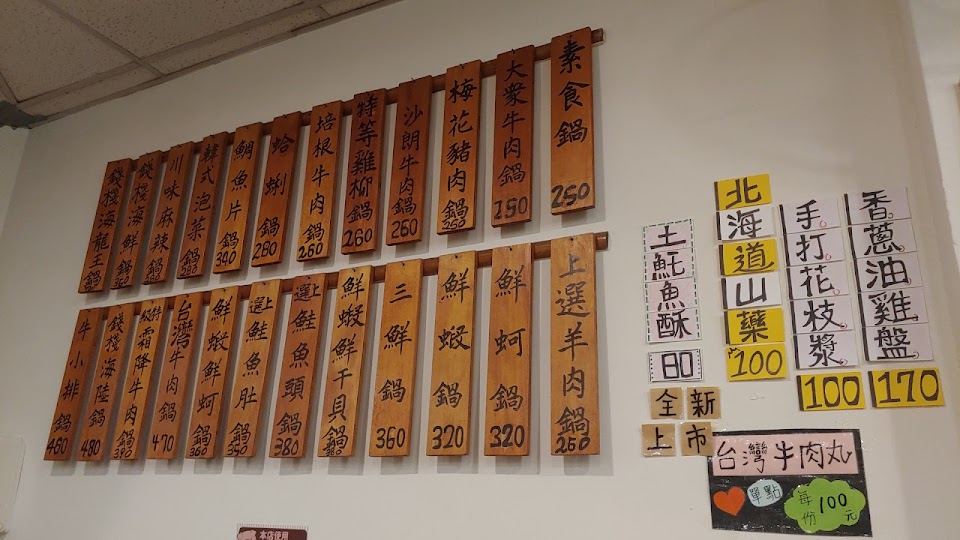 素食鍋 250
大眾牛肉鍋 250
梅花豬肉鍋 250
沙朗牛肉鍋 260
特等雞柳鍋 260
培根牛肉鍋 260
蛤蜊鍋 280
鯛魚片鍋 340
韓式泡菜鍋
川味麻辣鍋
錢棧海鮮鍋
錢棧海龍王鍋
上選羊肉鍋 260
鮮蚵鍋 320
鮮蝦鍋 320
三鮮鍋 360
鮮蝦鮮干貝鍋
上選鮭魚頭鍋 380
上選鮭魚肚鍋
鮮蝦鮮蚵鍋
台灣牛肉鍋 470
霜降牛肉鍋
錢棧海陸鍋 480
牛小排鍋 480
土魠魚酥
80
全新
上市
北海道山藥
100
手打花枝漿
100
香蔥油雞盤
170
台灣牛肉丸
單點
每份100元
本店使用